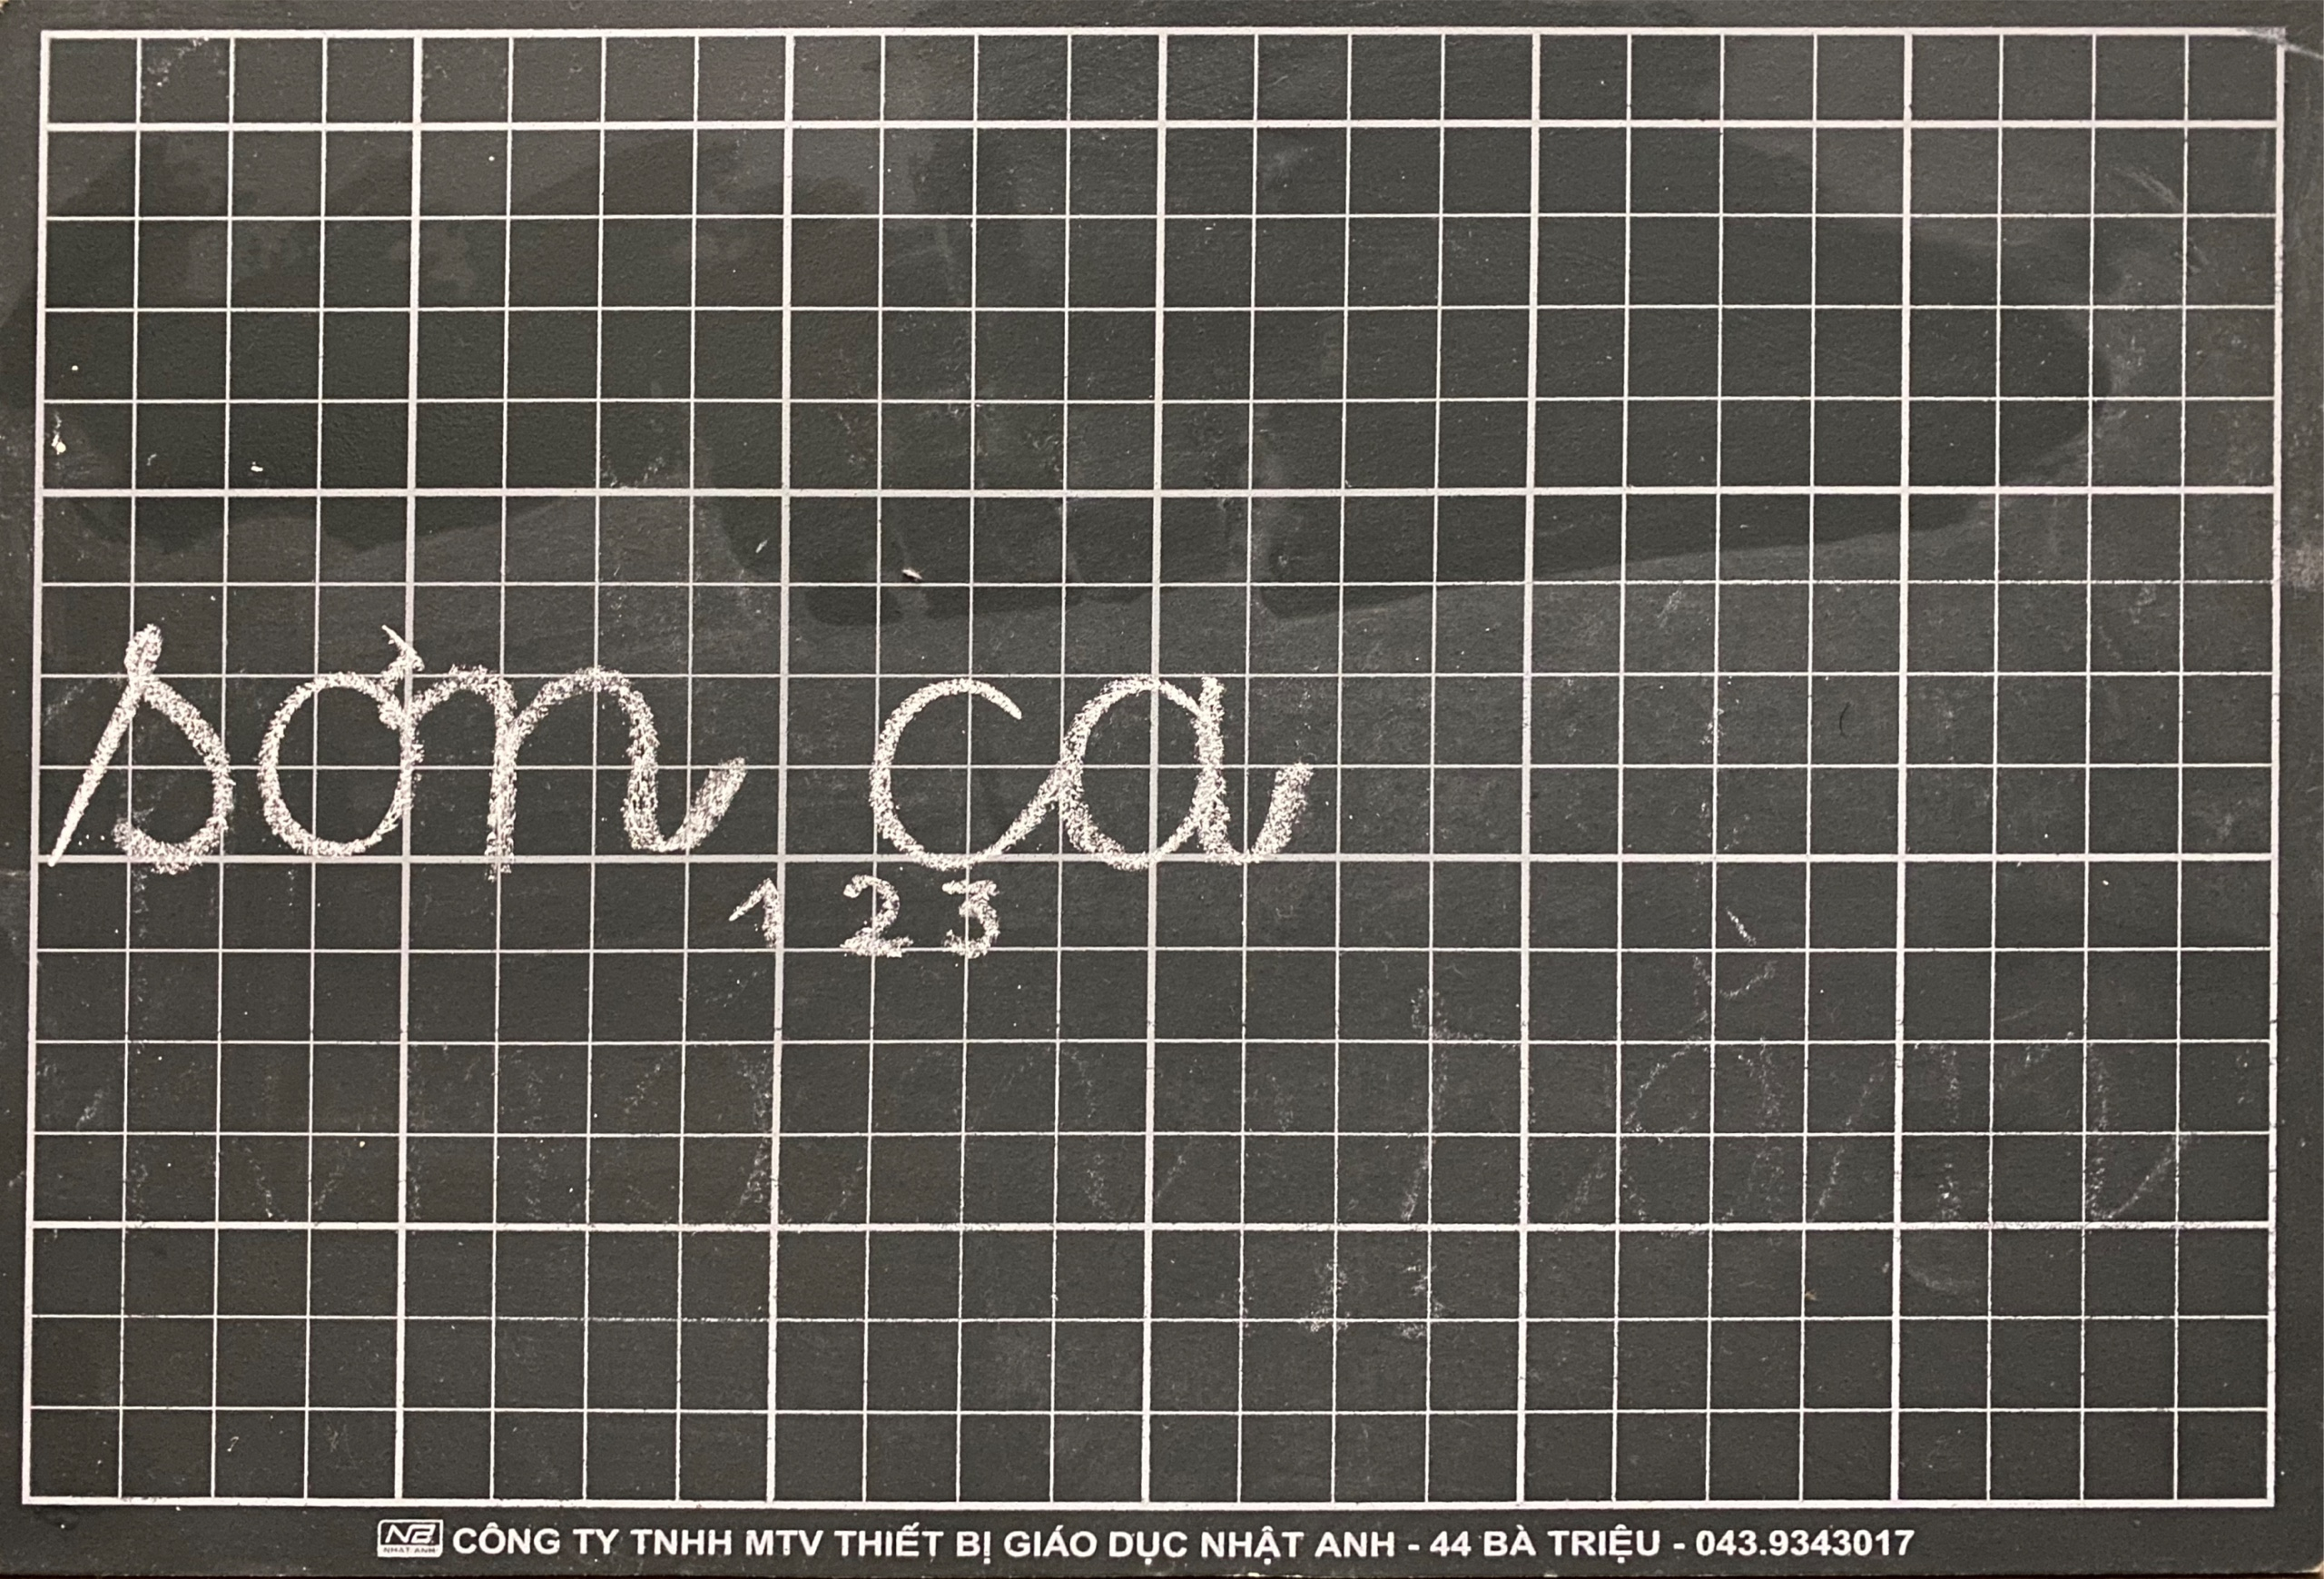 sơn ca
1 2 3
NA NHAT ANH CÔNG TY TNHH MTV THIẾT BỊ GIÁO DỤC NHẬT ANH - 44 BÀ TRIỆU - 043.9343017